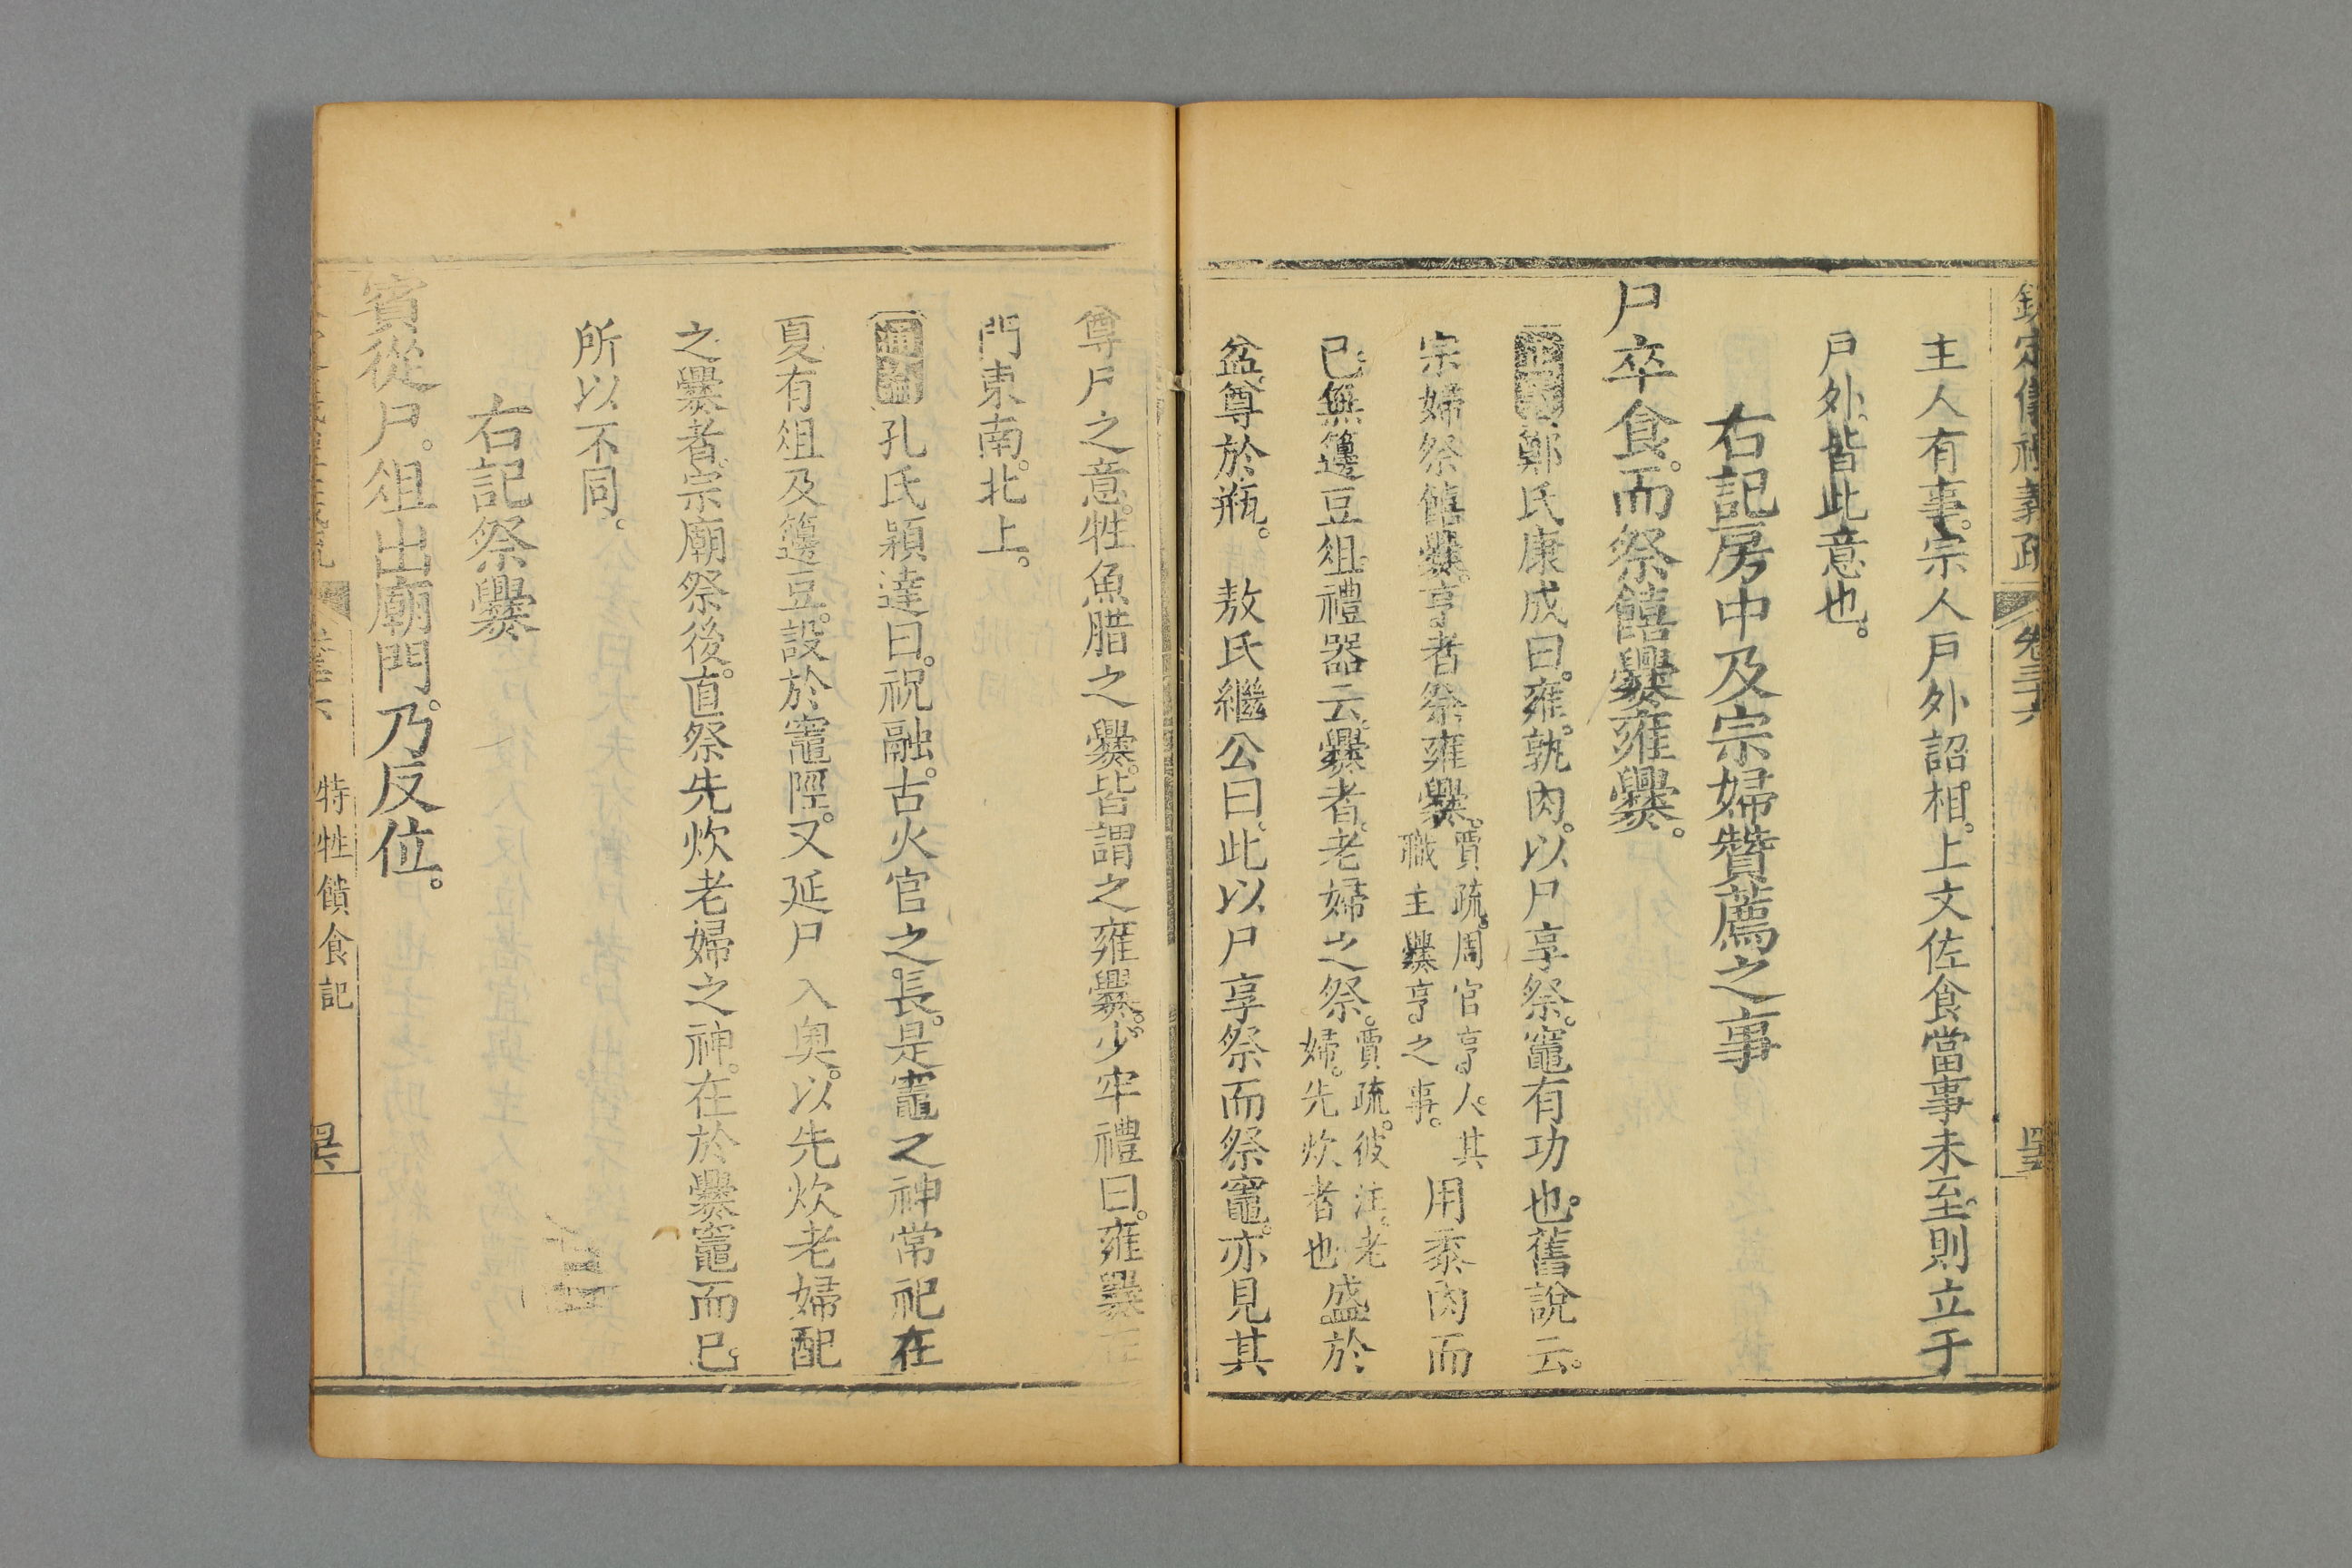 欽定儀禮義疏 卷三十六
主人有事。宗人戶外詔相。上文佐食當事未至。則立于
戶外。皆此意也。
右記房中及宗婦贊薦之事
尸卒食。而祭饎爨雍爨。
正義鄭氏康成曰。雍。孰肉。以尸享祭。竈有功也。舊說云。
宗婦祭饎爨。亨者祭雍爨。賈疏。周官亨人。其職主爨亨之事。用黍肉而
已。無籩豆俎。禮器云。爨者。老婦之祭。賈疏。彼注。老婦。先炊者也盛於
盆。尊於瓶。 敖氏繼公曰。此以尸享祭而祭竈。亦見其
尊尸之意。牲魚腊之爨。皆謂之雍爨。少牢禮曰。雍爨在
門東南。北上。
通論孔氏穎達曰。祝融。古火官之長。是竈之神常祀在
夏。有俎及籩豆。設於竈陘。又延尸入奥。以先炊老婦配
之爨者。宗廟祭後。直祭先炊老婦之神。在於爨竈而已。
所以不同。
右記祭爨
賓從尸。俎出廟門。乃反位。
特牲饋食記